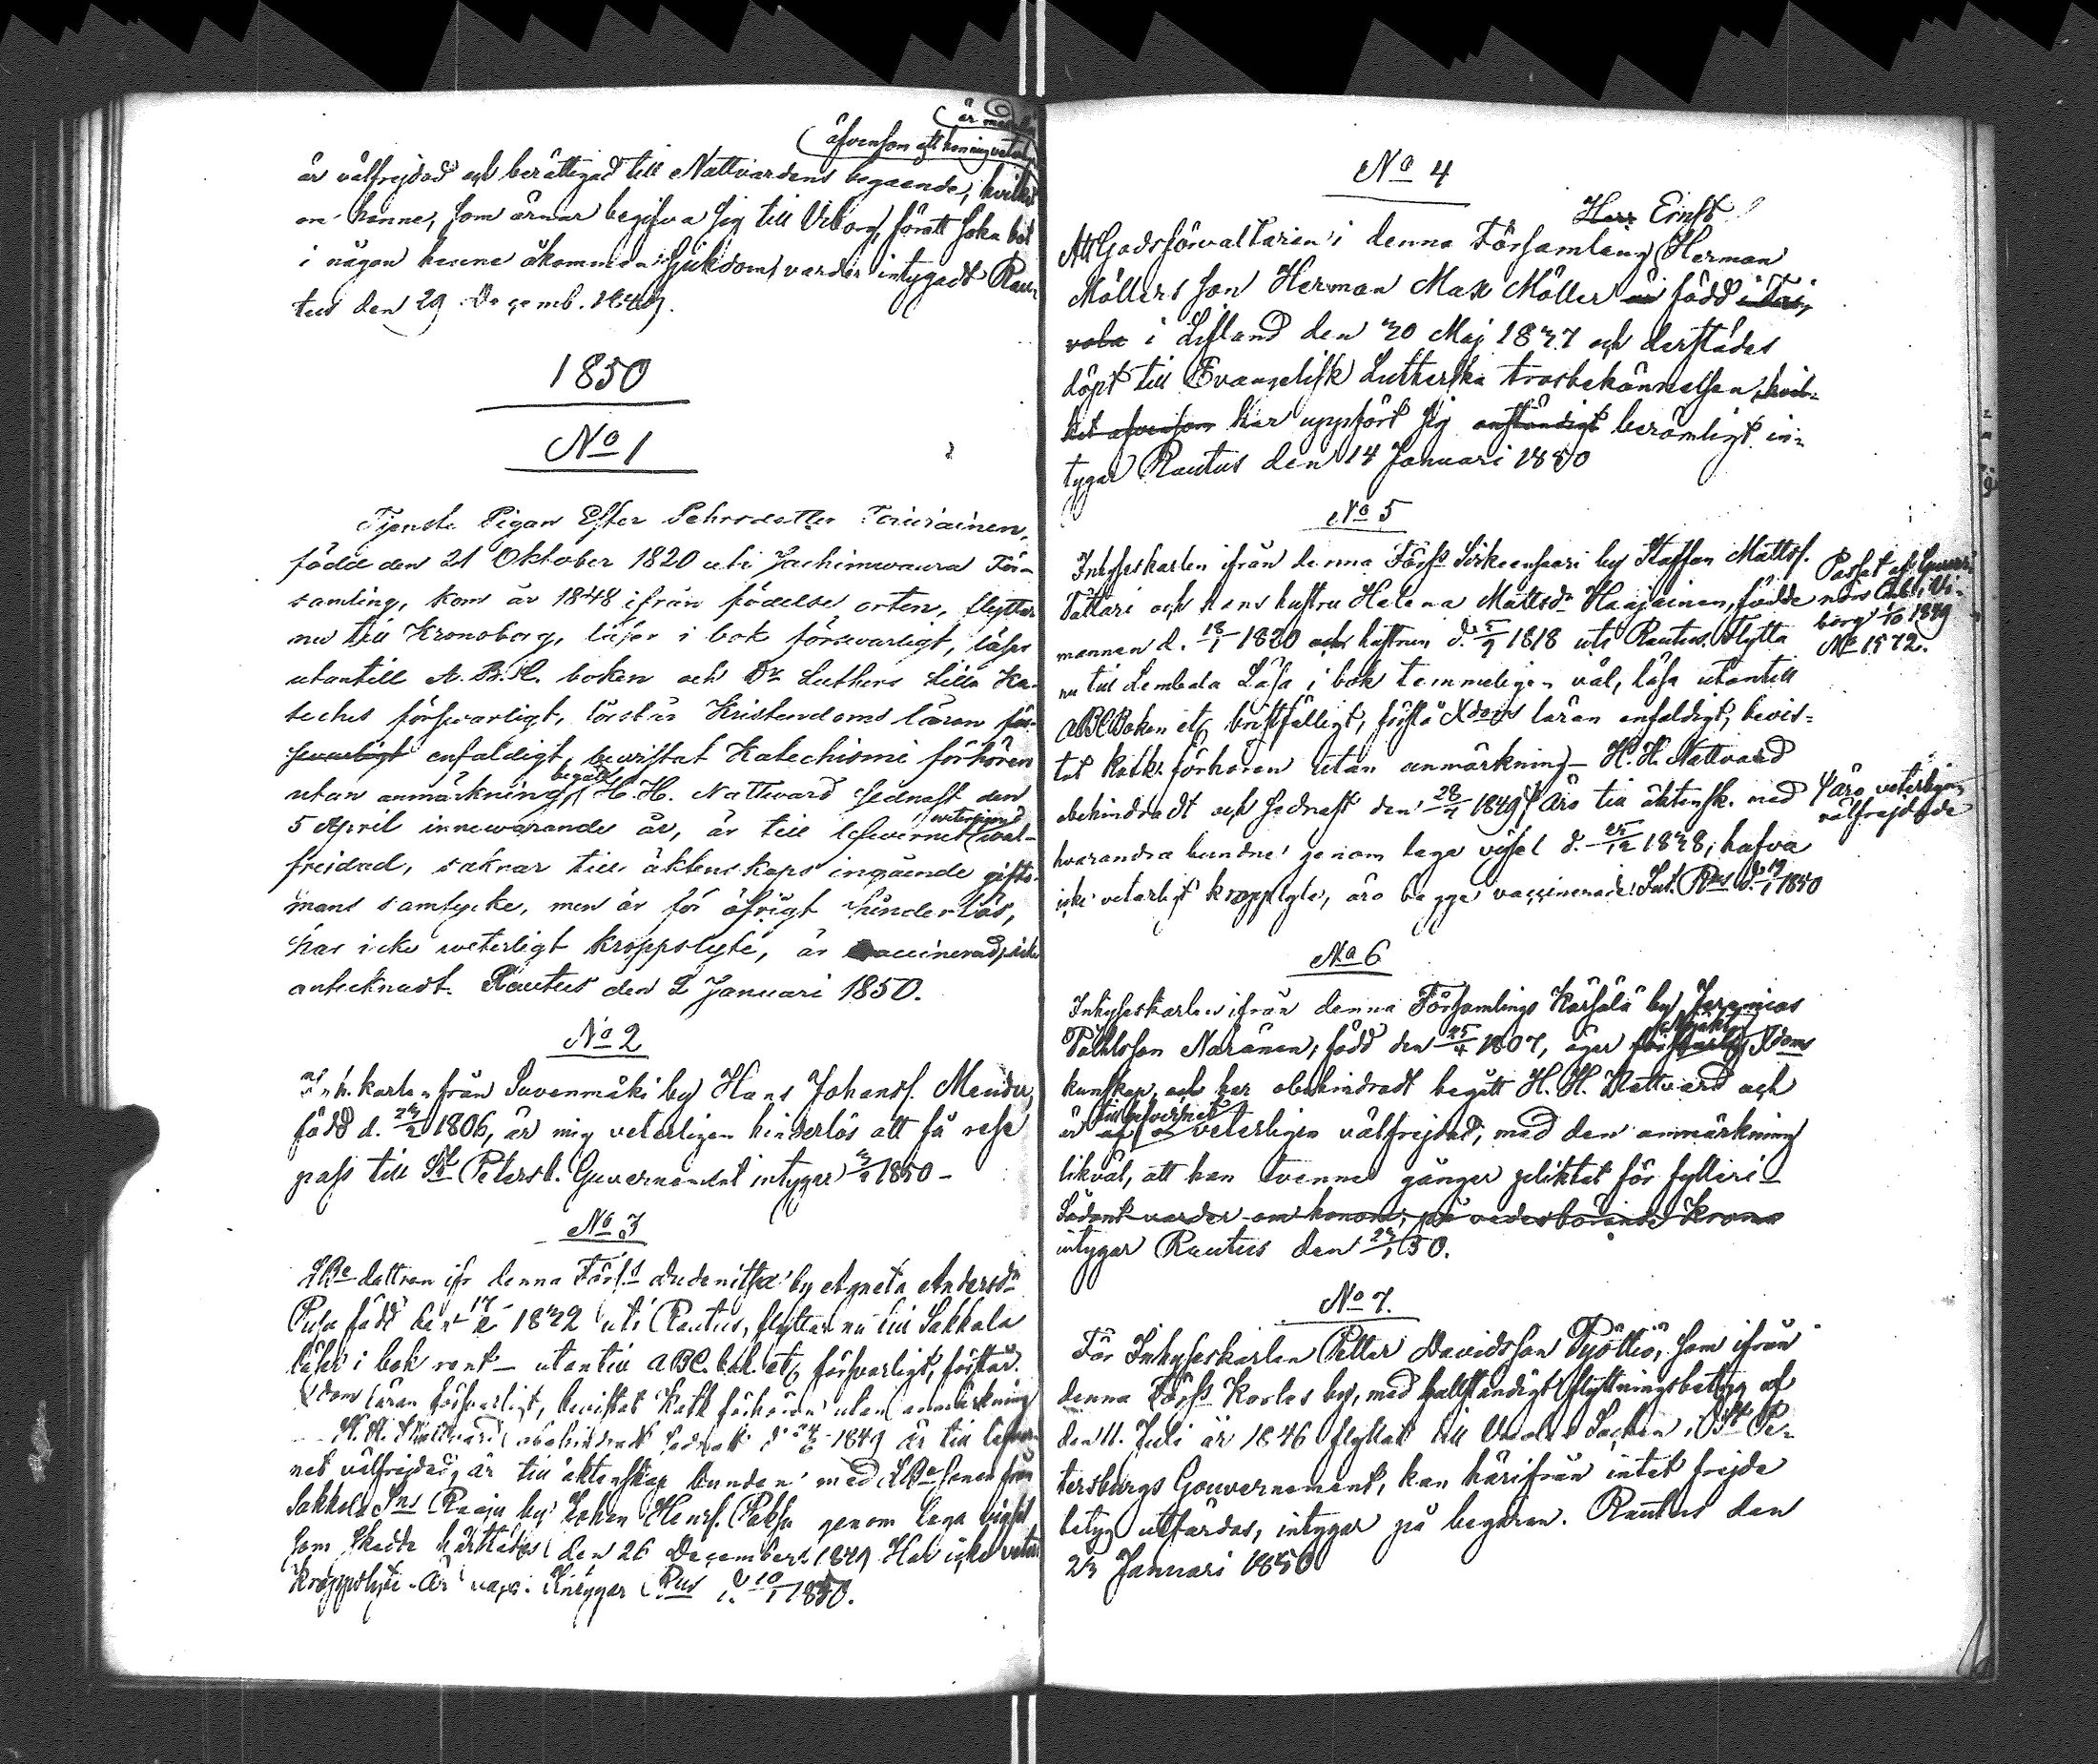 är
äfvensom att hon mig veterl.
är välfrejdad och berättigad till Nattvardens begaende, hvilket
om henne, som ärnar begifva sig till Viborg, för att söka bot
i någon henne åkommen Sjukdom, varder intygadt Rau-
tus den 29 Decemb. 1849.
1850
No 1
Tjenste Pigan Ester Pehrsdotter Tauriainen,
född den 21 Oktober 1820 uti Jachimwaara För-
samling, kom år 1848 ifrån födelse orten, flyttar
nu till Kronoborg, läser i bok försvarligt, läser
utantill A.B.C. boken och Dr Luthers lilla Ka-
teches försvarligt, förstår Kristendoms läran för-
svarligt enfaldigt, bewistat Katechismi förhören
utan anmärkning, begått H.H. Nattvard sednast den
5 April innewarande år, är till lefvernet veterligen väl-
frejdad, saknar till äktenskaps ingående gifto-
mans samtycke, men är för öfrigt hinderlös,
har icke weterligt kroppslyte, är vaccinerad, icke
antecknadt. Rautus den 2 Januari 1850.
No 2
Inh. karlen från Suvenmäki by Hans Johanss. Mendu,
född d. 1806, är mig veterligen hinderlös att få rese
pass till St Petersb. Guvernement intygar 1850 -
No 3
LBe dottren ifr denna Förs:s Dudenitza by Agneta Andersdr
Pusa född den 17/2 1822 uti Rautus, flyttar nu till Sakkola
läser i bok rent - utantill ABC. bok. etc försvarligt, förstår
Xdoms läran försvarligt, bevistat Katk förhören utan anmärkning
H.H. Nattvard obehindradt sednast d. 24/6 1849 är till lefver-
net välfrejdad, är till äktenskap bunden med LBe sonen från
Sakkola Sns Raaju by Johan Henrs. Paksu genom laga vigsel
som skedde härstädes den 26 December 1849 Har icke veterl.
kroppslyte. Är vacc. Intygar Rus d. 10/1 1850.
No 4
Herr Ernst
Att Godsförvaltaren i denna Församlang Herman
Möllers son Herman Max Möller är född i Tai,
vola i Lifland den 20 Maj 1827 och derstädes
döpt till Evangelisk Lutherska trosbekännelsen, hvil-
ket äfvensom har uppfört sig anständigt berömligt in-
tygar Rautus den 14 Januari 1850
No 5
Inhyseskarlen ifrån denna Förs:s Sirkeensaari by Staffan Mattss.
Tattari och hans hustru Helena Mattsdr Haajainen, födde
mannen d. 18/1 1820 och hustrun d. 1818 uti Rautus. Flytta
nu till Lembala Läsa i bok temmeligen väl, läsa utantill
ABCBoken etc bristfälligt, förstå Xdoms läran enfaldigt, bevis-
tat Katk. förhören utan anmärkning - H.H. Nattvard
obehindradt och sednast den 1849 Äro till äktensk. med
hvarandra bundne genom laga vigsel d. 1838, hafva
icke veterligt kroppslyte, äro begge vaccinerade. Int. Rus d. 19/1 1850
Passet af Guver-
nörs Cansl. i Vi-
borg 1849
No 1572.
äro veterligen
välfrejdade
No 6
Inhyseskarlen ifrån denna Församlings Kärsälä by Jeremias
Påhlsson Naränen, född den 25/4 1807, äger försvarlig Xdoms
kunskap, och har obehindradt begått H.H. Nattvard och
är till lefvernet veterligen välfrejdad, med den anmärkning
likväl, att han tvenne gånger pliktat för fylleri -
Sådant varder om honom, på vederbörande Krono
intygar Rautus den 23/1 50.
No 7.
För Inhyseskarlen Petter Davidsson Pyöttiö, som ifrån
denna Förs:s Korles by, med fullständigt flyttningsbetyg af
den 11. Juli år 1846 flyttat till Vuoles Socken i St Pe-
tersburgs Gouvernement, kan härifrån intet frejde
betyg utfärdas, intygar på begäran. Rautus den
23 Januari 1850